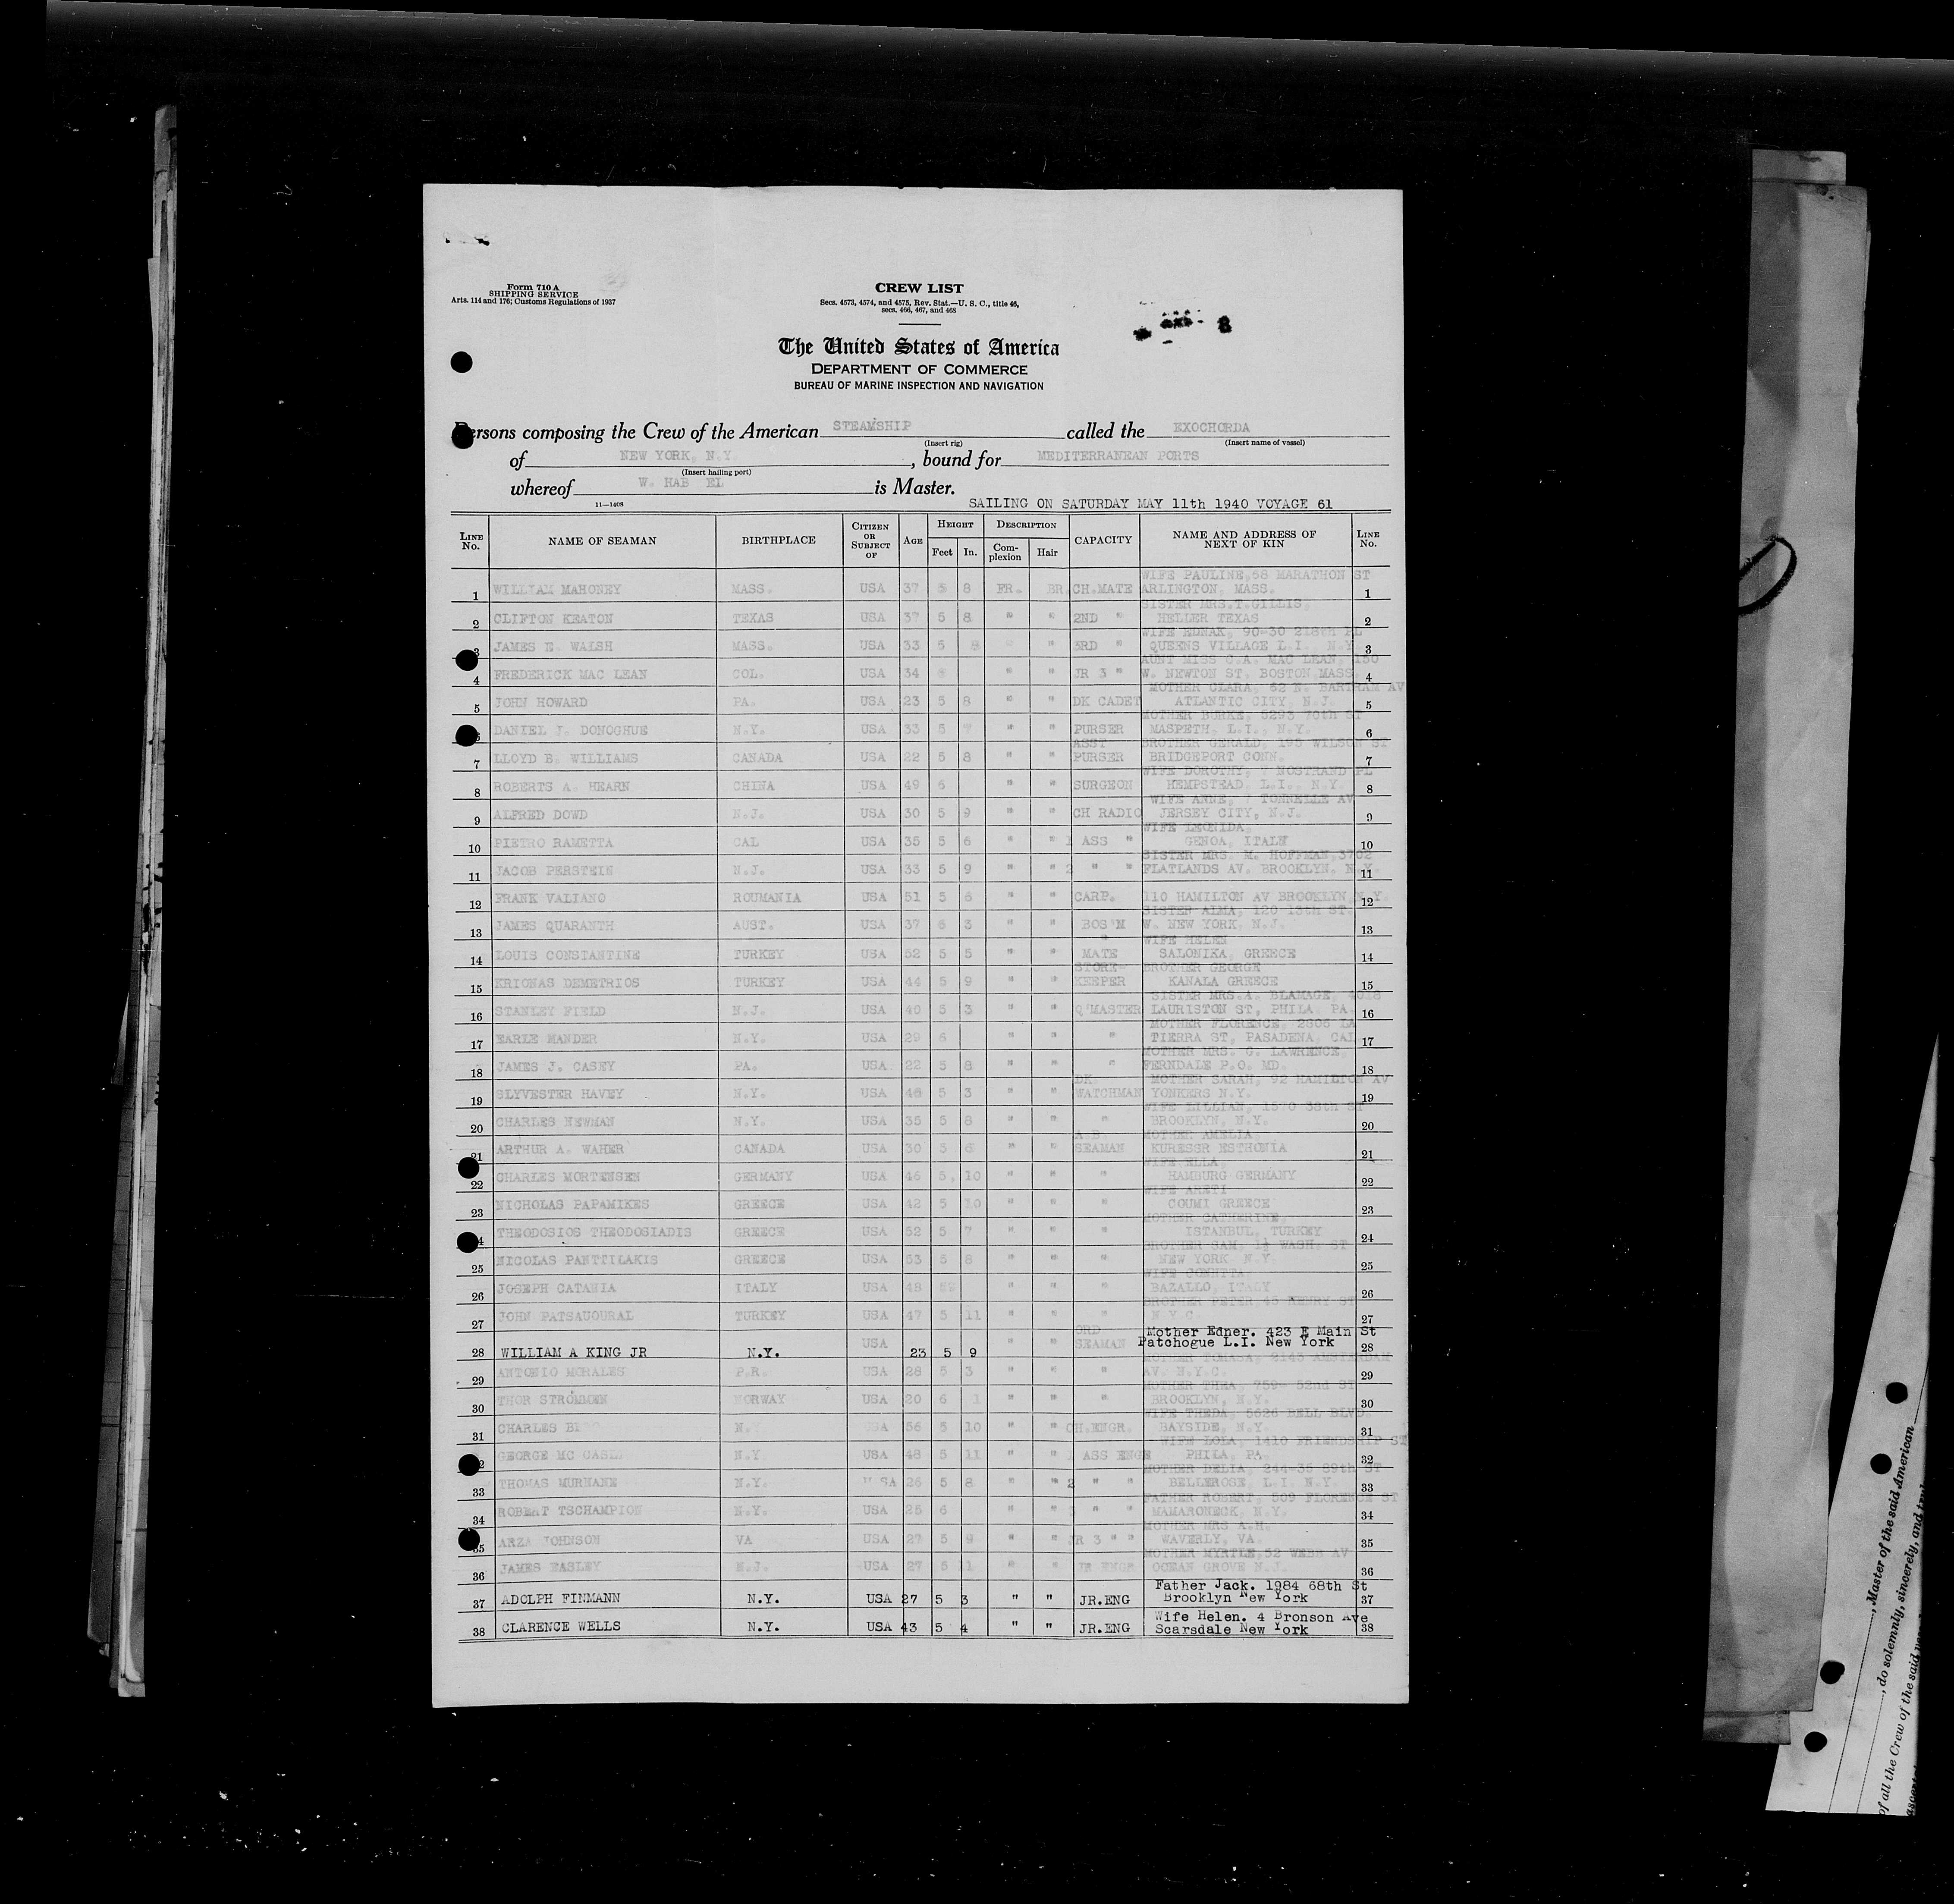 Form 710 A
SHIPPING SERVICE
Arts. 114 and 176; Customs Regulations of 1937
CREW LIST
Secs. 4573, 4574, and 4575, Rev. Stat.—U. S. C., title 46,
secs. 466, 467, and 468
The United States of America
DEPARTMENT OF COMMERCE
BUREAU OF MARINE INSPECTION AND NAVIGATION
Persons composing the Crew of the American STEAMSHIP called the EXOCHORDA
(Insert rig) (Insert name of vessel)
of NEW YORK, N.Y. , bound for MEDITERRANEAN PORTS
(Insert hailing port)
whereof W. HAB EL is Master.
11—1408
SAILING ON SATURDAY MAY 11th 1940 VOYAGE 61
LINE No. NAME OF SEAMAN BIRTHPLACE CITIZEN OR SUBJECT OF AGE HEIGHT Feet In. DESCRIPTION Complexion Hair CAPACITY NAME AND ADDRESS OF NEXT OF KIN LINE No.
WIFE PAULINE, 68 MARATHON ST
1 WILLIAM MAHONEY MASS. USA 37 5 8 FR. BR. CH.MATE ARLINGTON, MASS. 1
SISTER MRS.T.GILLIS,
2 CLIFTON KEATON TEXAS USA 37 5 8 " " 2ND " HELLER TEXAS 2
WIFE EDNAK, 90-30 218th PL
3 JAMES E. WALSH MASS. USA 33 5 8 " 3RD " QUEENS VILLAGE L.I. N.Y 3
AUNT MISS C.A. MAC LEAN, 150
4 FREDERICK MAC LEAN COL. USA 34 " " JR 3 " W. NEWTON ST. BOSTON MASS 4
MOTHER CLARA, 62 N. BARTRAM AV
5 JOHN HOWARD PA. USA 23 5 8 " " DK CADET ATLANTIC CITY, N.J. 5
MOTHER BURKE, 5293 70th ST
6 DANIEL J. DONOGHUE N.Y. USA 33 5 " " PURSER MASPETH, L.I., N.Y. 6
ASST BROTHER GERALD, 195 WILSON ST
7 LLOYD B. WILLIAMS CANADA USA 22 5 8 " " PURSER BRIDGEPORT CONN. 7
WIFE DOROTHY, 7 NOSTRAND PL
8 ROBERTS A. HEARN CHINA USA 49 6 " " SURGEON HEMPSTEAD, L.I., N.Y. 8
WIFE ANNE, 7 TONNELLE AV
9 ALFRED DOWD N.J. USA 30 5 9 " " CH RADIO JERSEY CITY, N.J. 9
WIFE LEONIDA,
10 PIETRO RAMETTA CAL USA 35 5 6 " " 1 ASS " GENOA, ITALY 10
SISTER MRS. M. HOFFMAN,3702
11 JACOB PERSTEIN N.J. USA 33 5 9 " " 2 " " FLATLANDS AV. BROOKLYN, N.Y. 11
12 FRANK VALIANO ROUMANIA USA 51 5 6 " " CARP. 110 HAMILTON AV BROOKLYN N.Y. 12
SISTER ALMA, 120 13th ST.
13 JAMES QUARANTH AUST. USA 37 6 3 " " BOS'N W. NEW YORK, N.J. 13
" WIFE HELEN
14 LOUIS CONSTANTINE TURKEY USA 52 5 5 " " MATE SALONIKA, GREECE 14
STORE- BROTHER GEORGE
15 KRIONAS DEMETRIOS TURKEY USA 44 5 9 " " KEEPER KANALA GREECE 15
SISTER MRS.A. BLAMAGE, 4018
16 STANLEY FIELD N.J. USA 40 5 3 " " Q'MASTER LAURISTON ST, PHILA. PA. 16
MOTHER FLORENCE, 2806 LA
17 EARLE MANDER N.Y. USA 29 6 " " " TIERRA ST, PASADENA, CAL 17
MOTHER MRS. C. LAWRENCE,
18 JAMES J. CASEY PA. USA 22 5 8 " " " FERNDALE P.O. MD. 18
DK MOTHER SARAH, 92 HAMILTON AV
19 SLYVESTER HAVEY N.Y. USA 46 5 3 " " WATCHMAN YONKERS N.Y. 19
WIFE LILLIAN, 1570 38th ST
20 CHARLES NEWMAN N.Y. USA 35 5 8 " " " BROOKLYN, N.Y. 20
A.B. MOTHER AMELIA
21 ARTHUR A. WAHER CANADA USA 30 5 6 " " SEAMAN KURESSR ESTHONIA 21
WIFE ELLA,
22 CHARLES MORTENSEN GERMANY USA 46 5 10 " " " HAMBURG GERMANY 22
WIFE ARETI
23 NICHOLAS PAPAMIKES GREECE USA 42 5 10 " " " COUMI GREECE 23
MOTHER CATHERINE,
24 THEODOSIOS THEODOSIADIS GREECE USA 52 5 7 " " " ISTANBUL, TURKEY 24
BROTHER SAM, 1½ WASH. ST
25 NICOLAS PANTTILAKIS GREECE USA 53 5 8 " " " NEW YORK N.Y. 25
WIFE
26 JOSEPH CATANIA ITALY USA 48 " " " BAZALLO, ITALY 26
BROTHER PETER 45 HENRY ST
27 JOHN PATSAUOURAL TURKEY USA 47 5 11 " " " N.Y.C. 27
ORD Mother Edner. 423 E Main St
28 WILLIAM A KING JR N.Y. USA 23 5 9 " " SEAMAN Patchogue L.I. New York 28
MOTHER TOMASA, 2143 AMSTERDAM
29 ANTONIO MORALES P.R. USA 28 5 3 " " " AV. N.Y.C. 29
MOTHER THEA, 759 52nd ST
30 THOR STROMMEN NORWAY USA 20 6 1 " " " BROOKLYN, N.Y. 30
WIFE THEDA, 5626 BELL BLVD.
31 CHARLES N. USA 56 5 10 " " CH.ENGR. BAYSIDE, N.Y. 31
WIFE LOLA, 1410 FRIENDSHIP ST
32 GEORGE MC CASL N.Y. USA 48 5 11 " " 1 ASS ENGR PHILA, PA. 32
MOTHER DELIA, 244-35 89th ST
33 THOMAS MURNANE N.Y. USA 26 5 8 " " 2 " " BELLEROSE L.I. N.Y. 33
FATHER ROBERT, 509 FLORENCE ST
34 ROBERT TSCHAMPION N.Y. USA 25 6 " " 3 " " MAMARONECK, N.Y. 34
MOTHER MRS A.H.
35 ARZA JOHNSON VA USA 27 5 9 " " JR 3 " " WAVERLY, VA. 35
MOTHER MYRTLE, 52 WEBB AV
36 JAMES EASLEY N.J. USA 27 5 11 " " JR ENGR OCEAN GROVE N.J. 36
Father Jack. 1984 68th St
37 ADOLPH FINMANN N.Y. USA 27 5 3 " " JR.ENG Brooklyn New York 37
Wife Helen. 4 Bronson Ave
38 CLARENCE WELLS N.Y. USA 43 5 4 " " JR.ENG Scarsdale New York 38
, Master of the said American
, do solemnly, sincerely, and
of all the Crew of the said